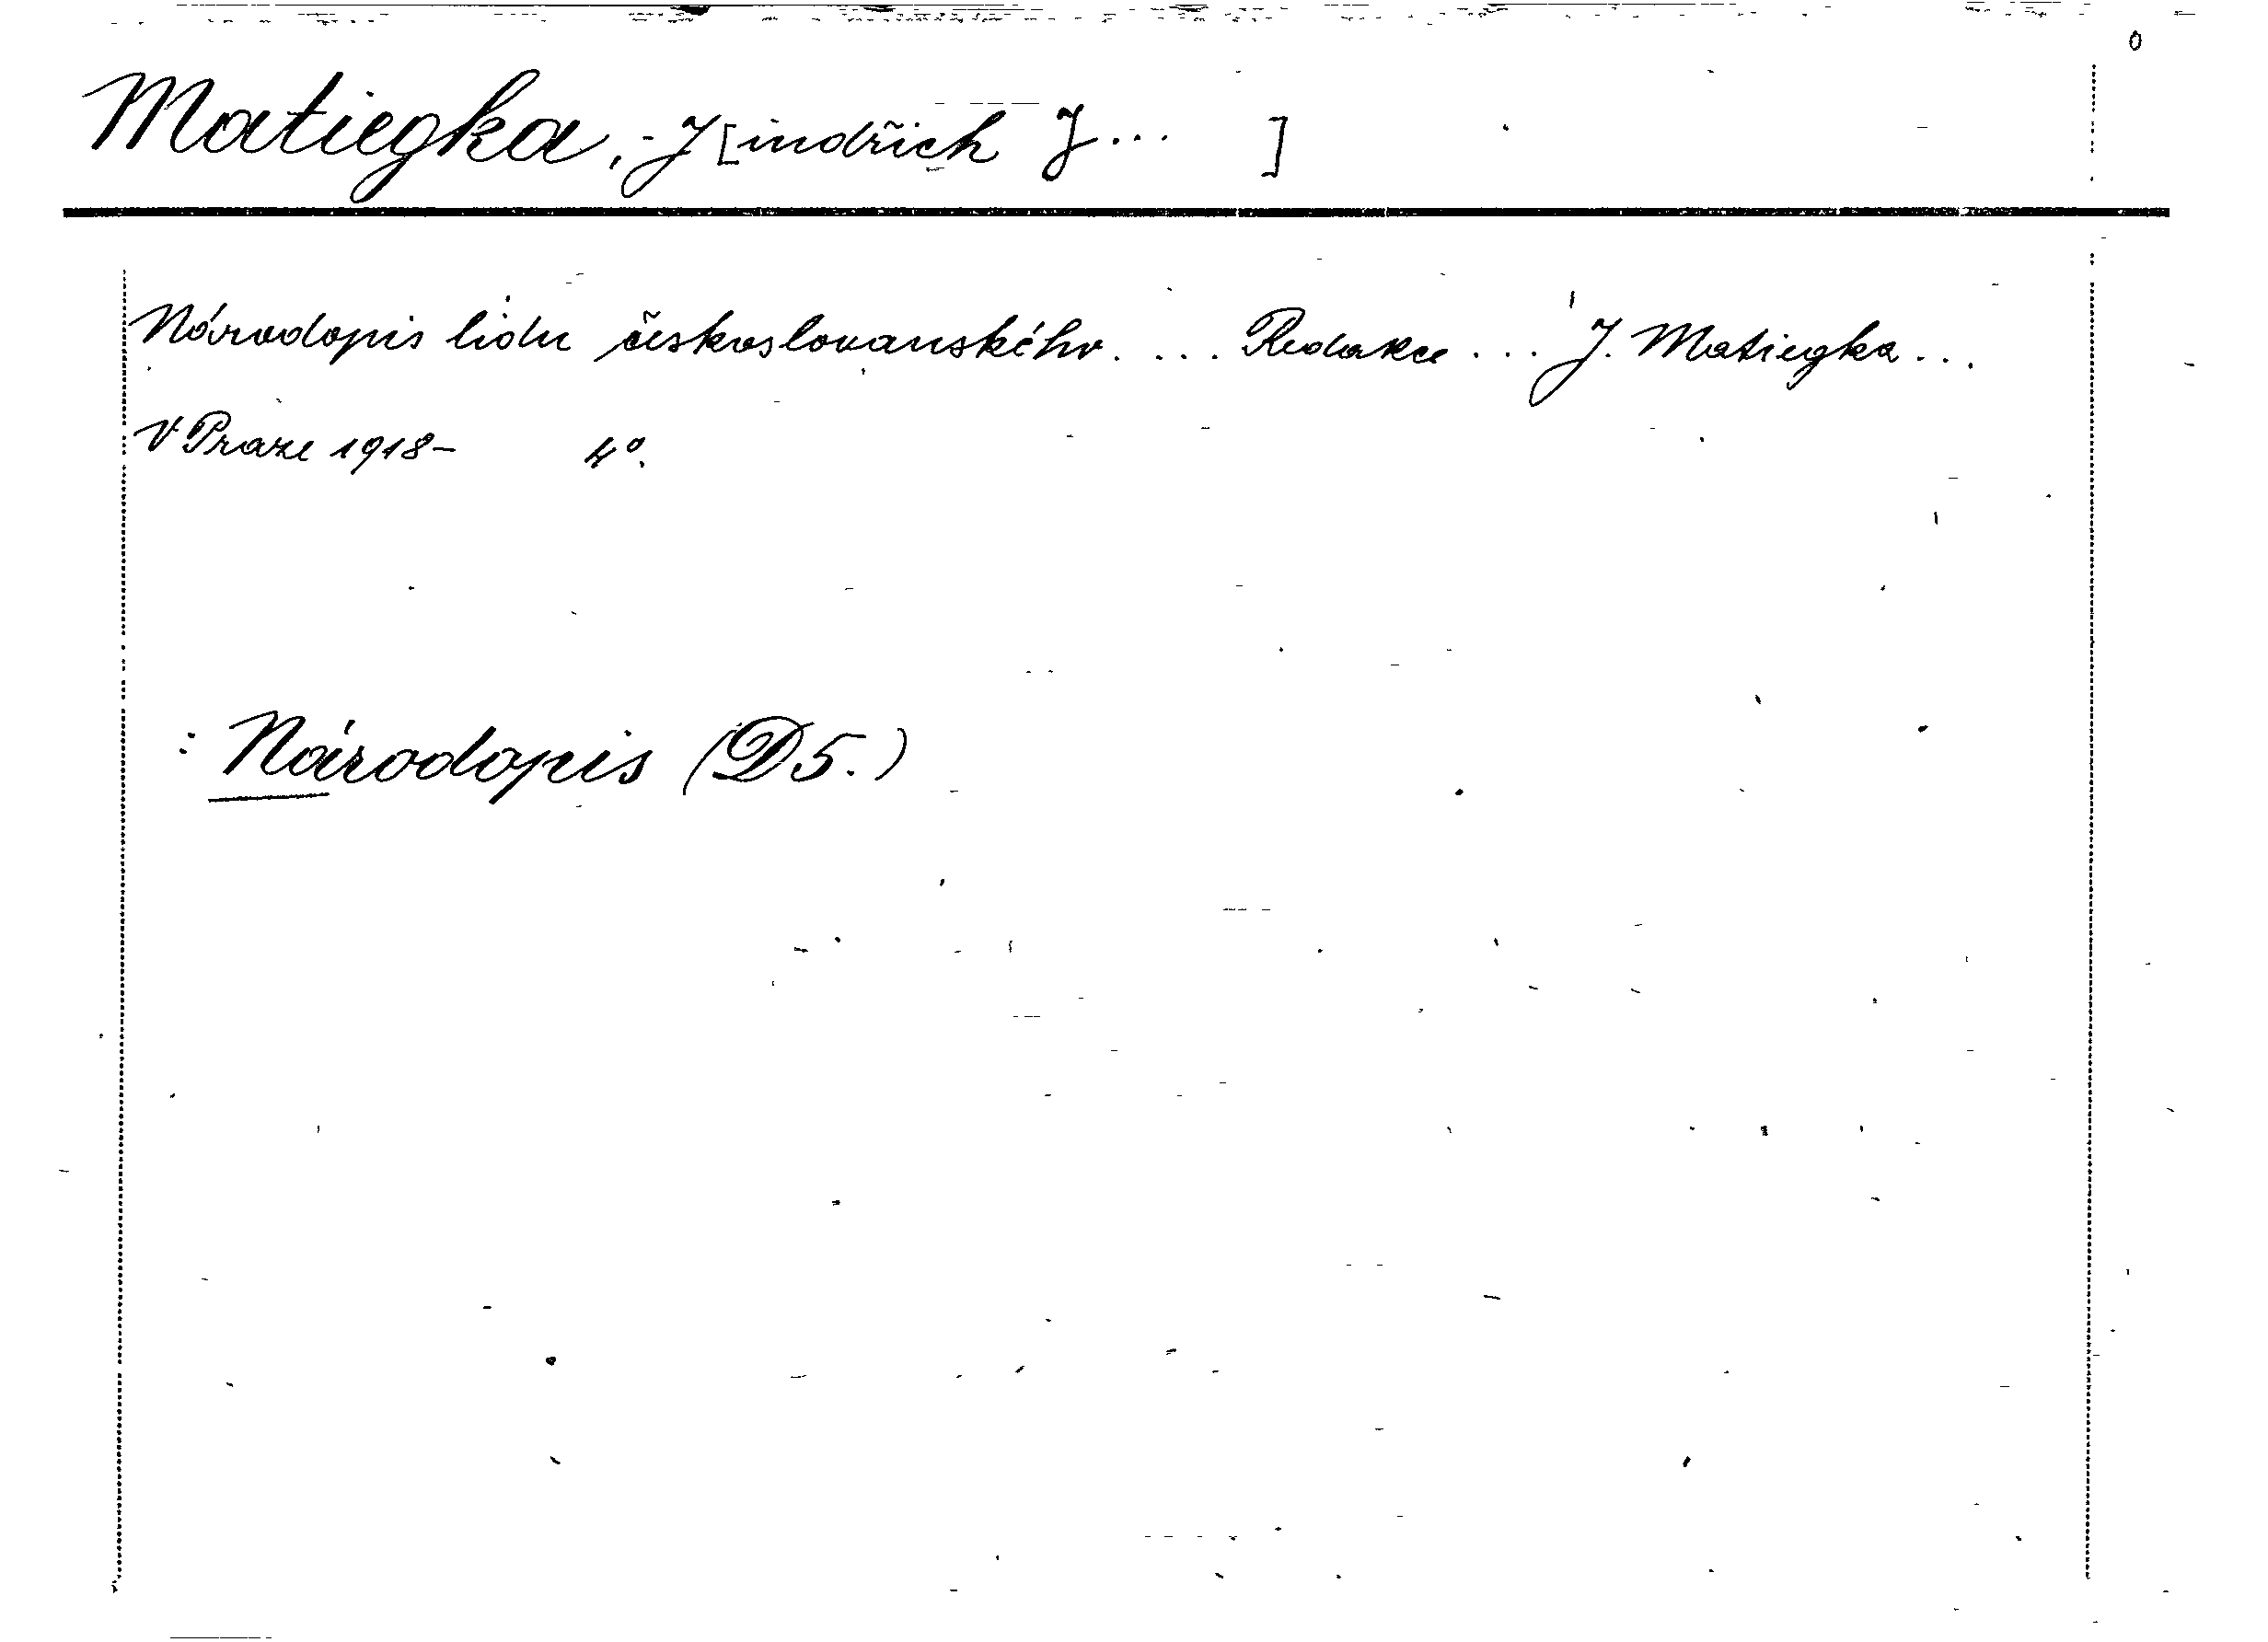 Matiegka, J[indřich J... ]
Národopis lidu českoslovanského. ... Redakce ... J. Matiegka ...
V Praze 1918- 4°.
: Národopis (D5.)